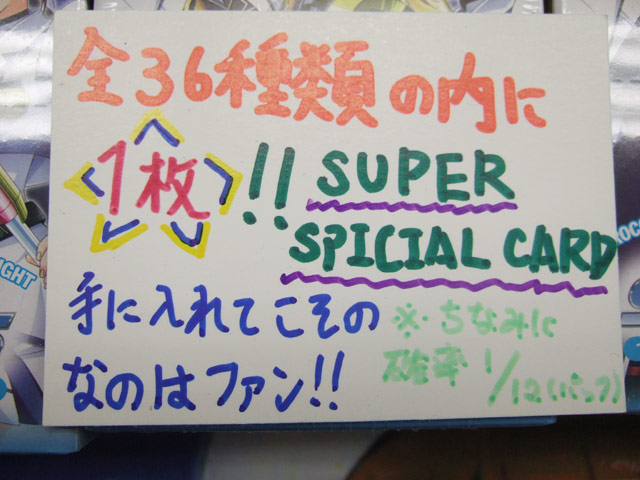 全36種類の内に
1枚!! SUPER
SPICIAL CARD
手に入れてこその
なのはファン!!
※ちなみに
確率1/12(パック)
IGHT
ROC